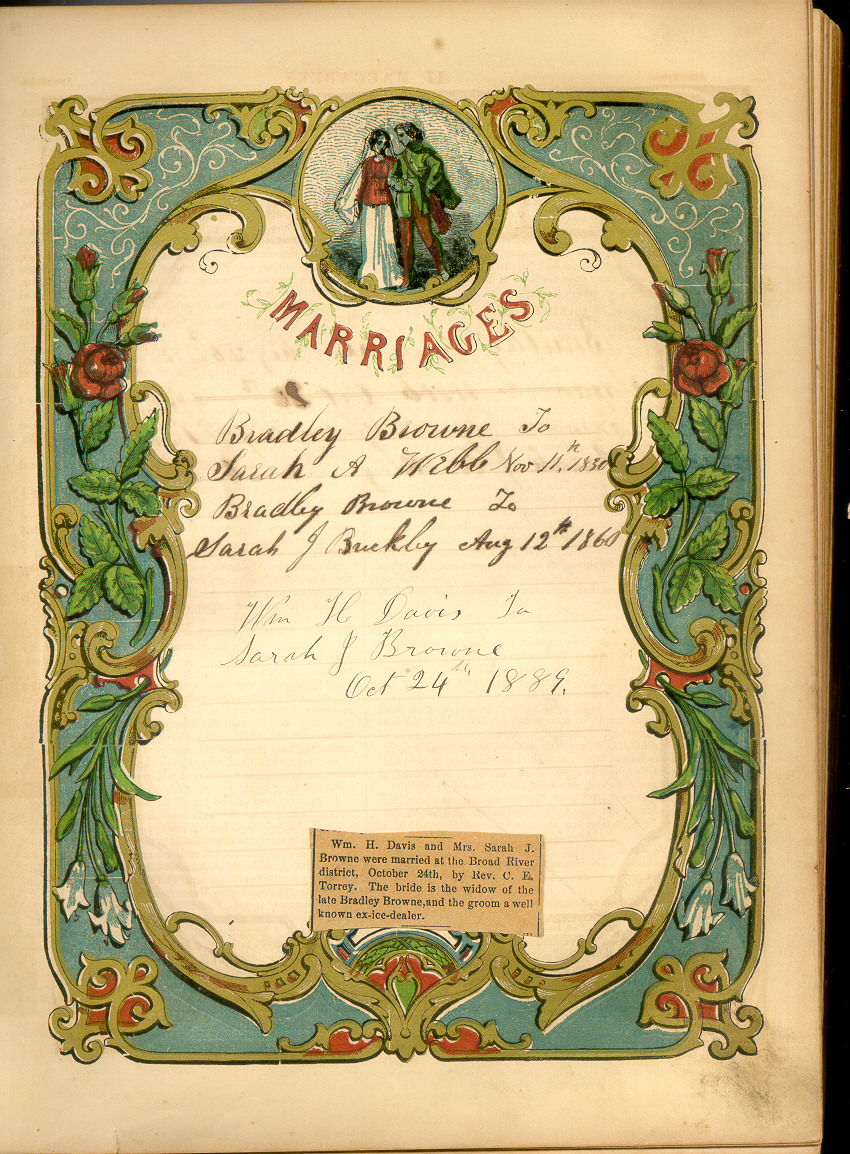 MARRIAGES
Bradley Browne To
Sarah A Webb Nov 11th, 1830
Bradley Browne To
Sarah J Buckby Aug 12th 1860
Wm H Davis To
Sarah J Browne
Oct 24th 1889.
Wm. H. Davis and Mrs. Sarah J.
Browne were married at the Broad River
district, October 24th, by Rev. C. E.
Torrey. The bride is the widow of the
late Bradley Browne, and the groom a well
known ex-ice-dealer.